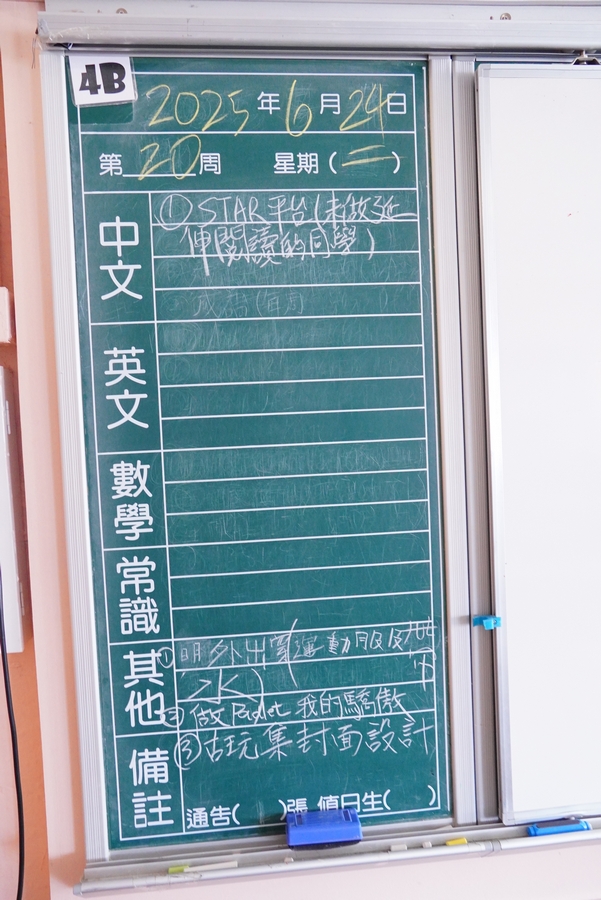 4B
2025 年 6 月 24 日
第 20 周 星期 (二)
中文
① STAR平台(未做延
伸閱讀的同學)
成語(每周
英文
數學
常識
其他
① 明外出(穿運動服及
水)
② 做Padlet 我的驕傲
備註
③ 古玩集封面設計
通告( )張 值日生( )